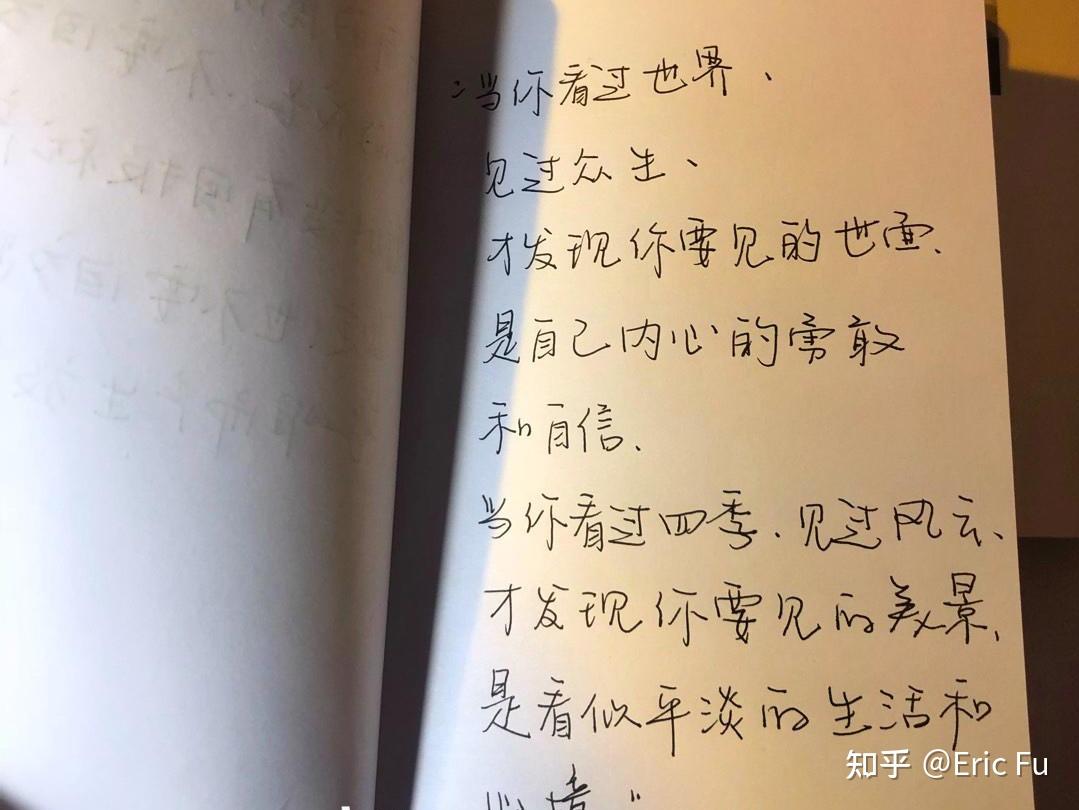 "当你看过世界、
见过众生、
才发现你要见的世面、
是自己内心的勇敢
和自信、
当你看过四季、见过风云、
才发现你要见的美景、
是看似平淡的生活和
心情"
知乎 @Eric Fu